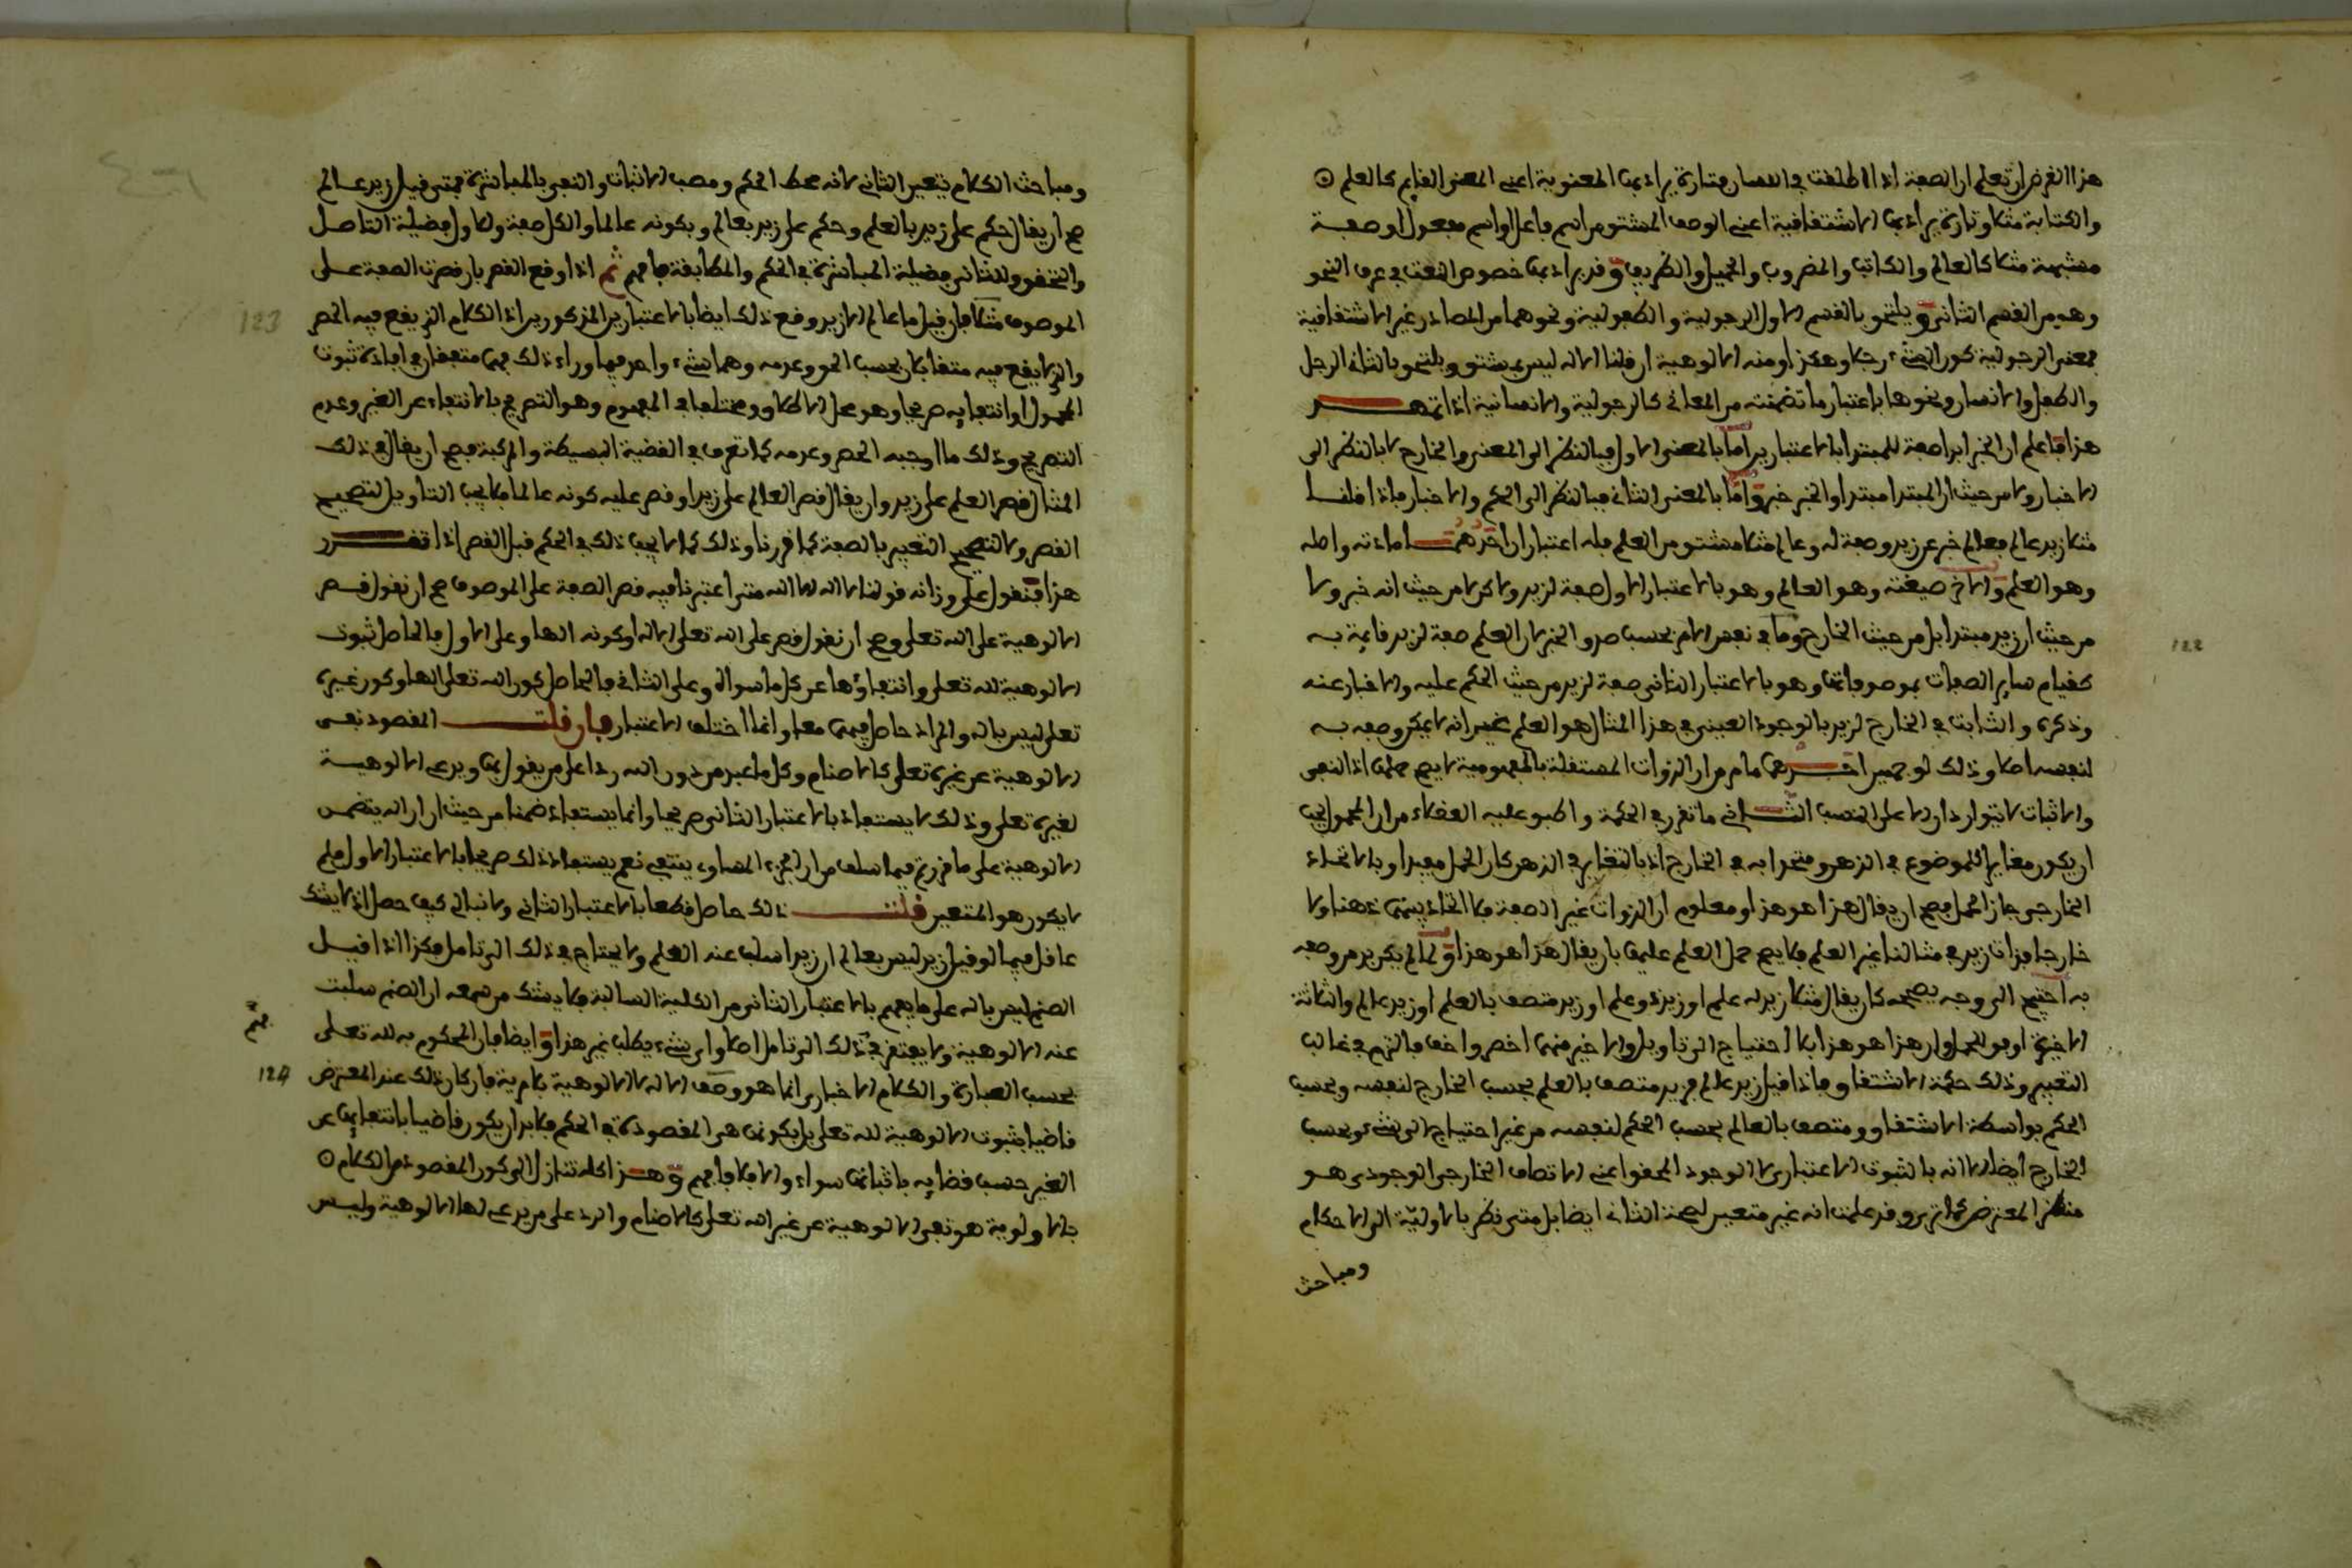 هذا الغرض ان تعلم ان الصفة اذا اطلقت في اللسان فتارة يراد بها المعنوية اعني المعنى القايم كالعلم
والكتابة مثلا وتارة يراد بها الاشتقافية اعني الوصف المشتق من اسم فاعل او اسم مفعول او صفة
مشبهة مثلا كالعالم والكاتب والمضروب والجميل والظريف وقد يراد بها خصوص النعت في عرف النحو
وهو من القسم الثاني ويلتحق بالقسم الاول الرجولية والطفولية ونحوهما من المصادر غير الاشتقافية
فمعنى الرجولية كون الشيء رجلا وهكذا ومنه الالوهية ان قلنا الاله ليس بمشتق ويلتحق بالثاني الرجل
والطفل والانسان ونحوها باعتبار ما تضمنته من المعاني كالرجولية والانسانية اذا تمهد
هذا فاعلم ان الخبر ابدا صفة للمبتدا بالاعتبارين اما بالمعنى الاول فبالنظر الى المعنى والخارج لا بالنظر الى
الاخبار ولا من حيث ان المبتدا مبتدا والخبر خبر واما بالمعنى الثاني فبالنظر الى الحكم والاخبار فاذا قلنا
مثلا زيد عالم فعالم خبر عن زيد وصفة له وعالم مثلا مشتق من العلم فله اعتباران احدهما مادته واصله
وهو العلم والاخر صيغته وهو العالم وهو بالاعتبار الاول صفة لزيد ولاكن لا من حيث انه خبر ولا
من حيث ان زيد مبتدا بل من حيث الخارج وما في نفس الامر بحسب صدق الخبر لان العلم صفة لزيد قايمة به
كقيام ساير الصفات بموصوفاتها وهو بالاعتبار الثاني صفة لزيد من حيث الحكم عليه والاخبار عنه
وذكره والثابت في الخارج لزيد بالوجود العيني في هذا المثال هو العلم غير انه لا يمكن وصفه به
لنفسه اصلا وذلك لوجهين احدهما ما مر من ان الذوات المستقلة بالمفهومية لا يصح حملها اذ النفي
والاثبات لا يتواردان الا على النسب الثاني ما تقرر في الحكمة واطبق عليه العقلاء من ان المحمول يجب
ان يكون مغايرا للموضوع في الذهن ومتحدا به في الخارج اذ بالتغاير في الذهن كان الحمل مفيدا وبالاتحاد
الخارجي جاز الحمل فصح ان يقال هذا هو هذا ومعلوم ان الذوات غير الصفة فلا اتحاد بينها ذهنا ولا
خارجا فذات زيد في مثالنا غير العلم فلا يصح حمل العلم عليها بان يقال هذا هو هذا ولما لم يكن بد من وصفه
به احتيج الى وجه يصححه كان يقال مثلا زيد له علم او زيد ذو علم او زيد متصف بالعلم او زيد عالم والثلاثة
الاخيرة اوفق للحمل وان هذا هو هذا بلا احتياج الى تاويل والاخير منها اخصر واخف فالتزم في غالب
التعبير وذلك حكمة الاشتقاق فاذا قيل زيد عالم فزيد متصف بالعلم بحسب الخارج لنفسه وبحسب
الحكم بواسطة الاشتقاق ومتصف بالعالم بحسب الحكم لنفسه من غير احتياج الى شيء وبحسب
الخارج ايضا الا انه بالثبوت الاعتباري لا الوجود المحقق اعني الاتصاف الخارجي الوجودي هو
منظر المعترض كما ترى وقد علمت انه غير متعين لصحة الثاني ايضا بل متى نظر بالاولية الى الاحكام
ومباحث
ومباحث الكلام يتعين الثاني لانه محط الحكم ومصب الاثبات والنفي بالمباشرة فمتى قيل زيد عالم
صح ان يقال حكم على زيد بالعلم وحكم على زيد بعالم وبكونه عالما والكل صفة وللاول فضيلة التاصل
والتحقق وللثاني فضيلة المباشرة في الحكم والمطابقة فافهم ثم اذا وقع القصر بان قصرت الصفة على
الموصوف مثلا فان قيل ما عالم الا زيد وقع ذلك ايضا بالاعتبارين المذكورين اذ الكلام الذي يقع فيه الحصر
والذي لا يقع فيه متقابلان بحسب الحق وعدمه وهما شيء واحد فيما وراء ذلك فهما متفقان في افادة ثبوت
المحمول او انتفايه صريحا وهو محل الاطلاق ومختلفا في المفهوم وهو التصريح بالانتفاء عن الغير وعدم
التصريح وذلك ما اوجبه الحصر وعدمه كما تعرف في القضية البسيطة والمركبة فصح ان يقال في ذلك
المثال قصر العلم على زيد وان يقال قصر العالم على زيد او قصر عليه كونه عالما فلا يجب التاويل لتصحيح
القصر ولا لتصحيح التعبير بالصفة كما قررنا وذلك كما لا يجب ذلك في الحكم قبل القصر اذا تقرر
هذا فنقول على وزانه قولنا لا اله الا الله متى اعتبرنا فيه قصر الصفة على الموصوف صح ان نقول قصر
الالوهية على الله تعلى وصح ان نقول قصر على الله تعلى الاله او كونه الها وعلى الاول فالحاصل ثبوت
الالوهية لله تعلى وانتفاؤها عن كل ما سواه وعلى الثاني فالحاصل كون الله تعلى الها وكون غيره
تعلى ليس باله والمراد حاصل فيهما معا وانما اختلف الاعتبار فان قلت المقصود نفي
الالوهية عن غيره تعلى كالاصنام وكل ما عبد من دون الله ردا على من يقول بها ويدعي الالوهية
لغيره تعلى وذلك لا يستفاد بالاعتبار الثاني صريحا وانما يستفاد ضمنا من حيث ان الاله يتضمن
الالوهية على ما قررته فيما سلف من ان الجزء المساوي ينتفي نعم يستفاد ذلك صريحا بالاعتبار الاول فلم
لا يكون هو المتعين قلت ذلك حاصل قطعا بالاعتبار الثاني ولا نبالي كيف حصل اذ لا يشك
عاقل فيما لو قيل زيد ليس بعالم ان زيدا سلب عنه العلم ولا يحتاج في ذلك الى تامل فكذا اذا قيل
الصنم ليس باله على ما يفهم بالاعتبار الثاني من الكلية السالبة فلا يشك من سمعه ان الصنم سلبت
عنه الالوهية ولا يفتقر في ذلك الى تامل اصلا واي شيء يطلب غير هذا وايضا فان المحكوم به لله تعلى
بحسب العبارة والكلام الاخباري انما هو وصف الاله لا الالوهية بلا مرية فان كان ذلك عند المعترض
قاضيا بثبوت الالوهية لله تعلى بل بكونها هي المقصودة في الحكم فلا بد ان يكون قاضيا بانتفايها عن
الغير حسب قضايه باثباتها سواء والا فلا فافهم وهذا كله تنازل الى كون المقصود من الكلام
بالاولوية هو نفي الالوهية عن غير الله تعلى كالاصنام والرد على من يدعي لها الالوهية وليس
123
124
122